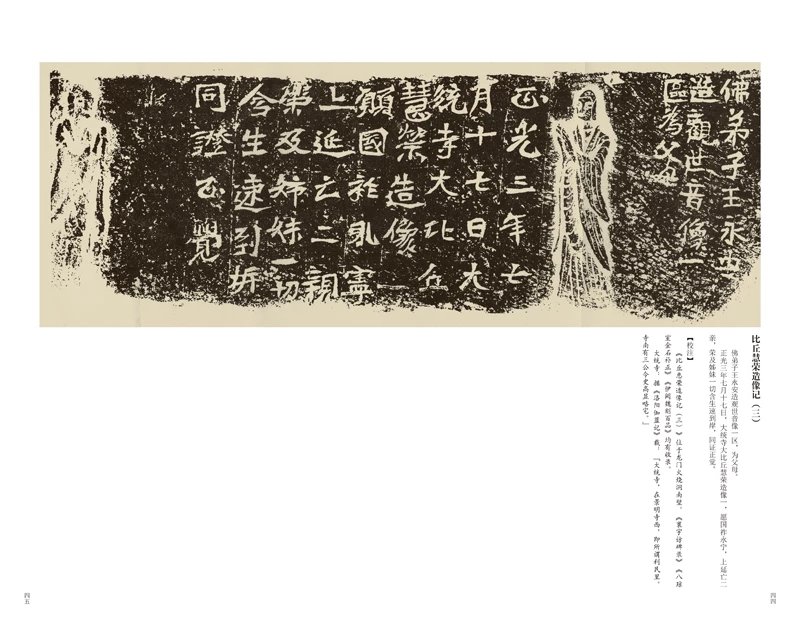 佛弟子王永安
造觀世音像一
區為父母
正光三年七
月十七日大
統寺大比丘
慧榮造像一
願國祚永寧
上延亡二親
榮及姉妹一切
含生速到岸
同證正覺
比丘慧荣造像记（三）
佛弟子王永安造观世音像一区，为父母。
正光三年七月十七日，大统寺大比丘慧荣造像一，愿国祚永宁，上延亡二
亲，荣及姊妹一切含生速到岸，同证正觉。
【校注】
《比丘慧荣造像记（三）》位于龙门火烧洞南壁，《寰宇访碑录》《八琼
室金石补正》《伊阙魏刻百品》均有收录。
大统寺：据《洛阳伽蓝记》载：「大统寺，在景明寺西，即所谓利民里。
寺南有三公令史高显略宅。」
四四
四五